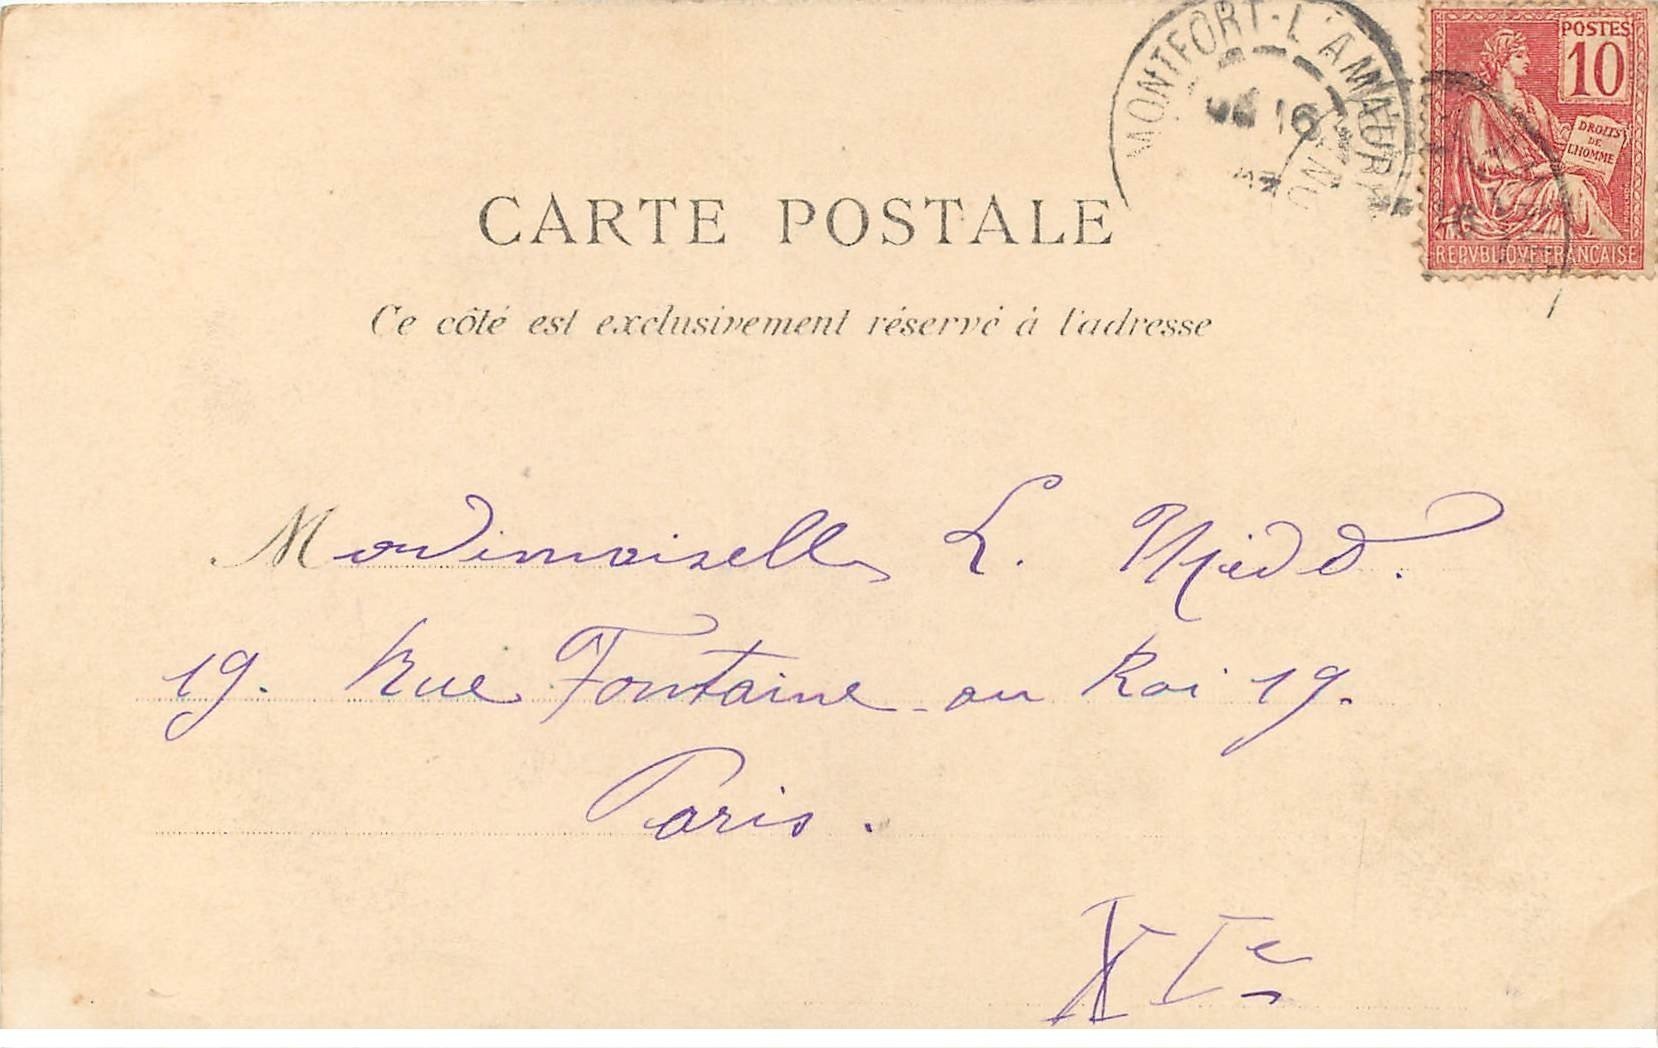 MONTFORT-L'AMAURY
16
POSTES
10
DROITS
DE
L'HOMME
REPVBLIQVE FRANÇAISE
CARTE POSTALE
Ce côté est exclusivement réservé à l'adresse
Mademoiselle L.
19. Rue Fontaine-au Roi 19.
Paris.
XIe